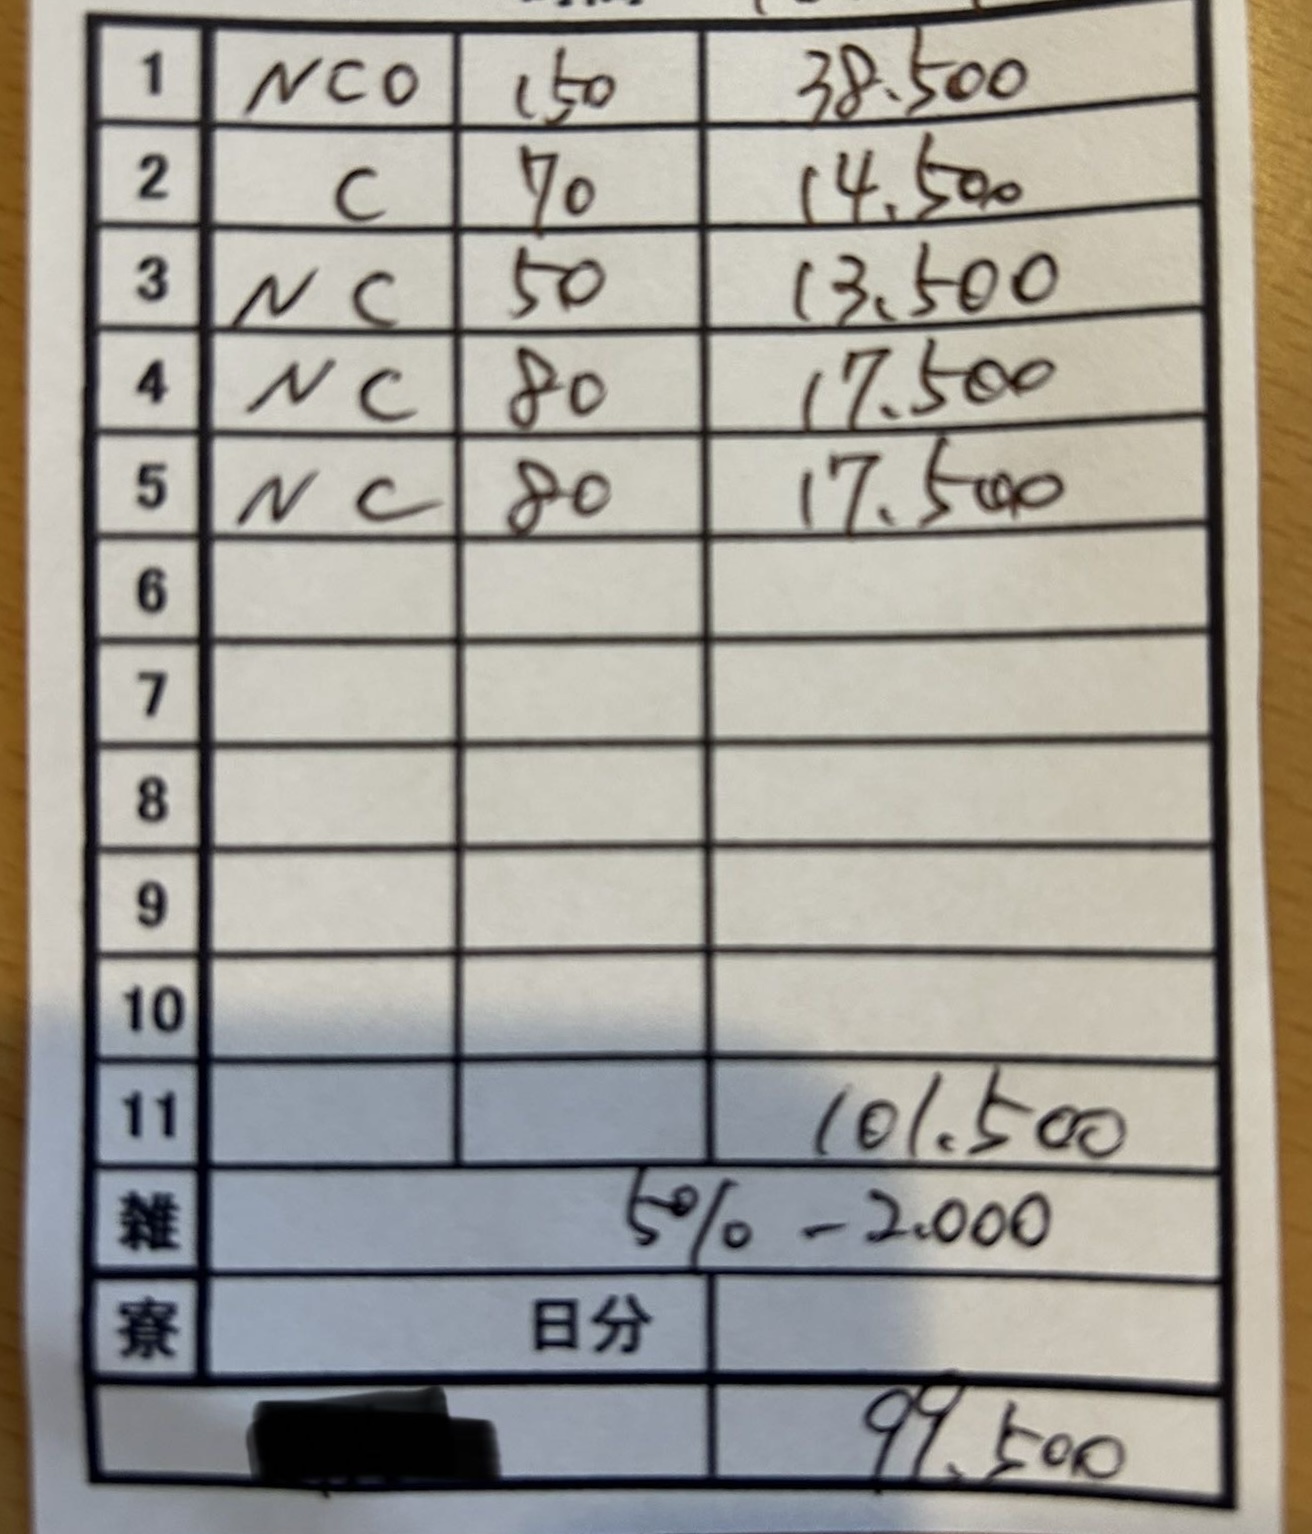 1 NCO 150 38.500
2 C 70 14.500
3 NC 50 13.500
4 NC 80 17.500
5 NC 80 17.500
6
7
8
9
10
11 101.500
雑 50% -2.000
寮 日分
99.500